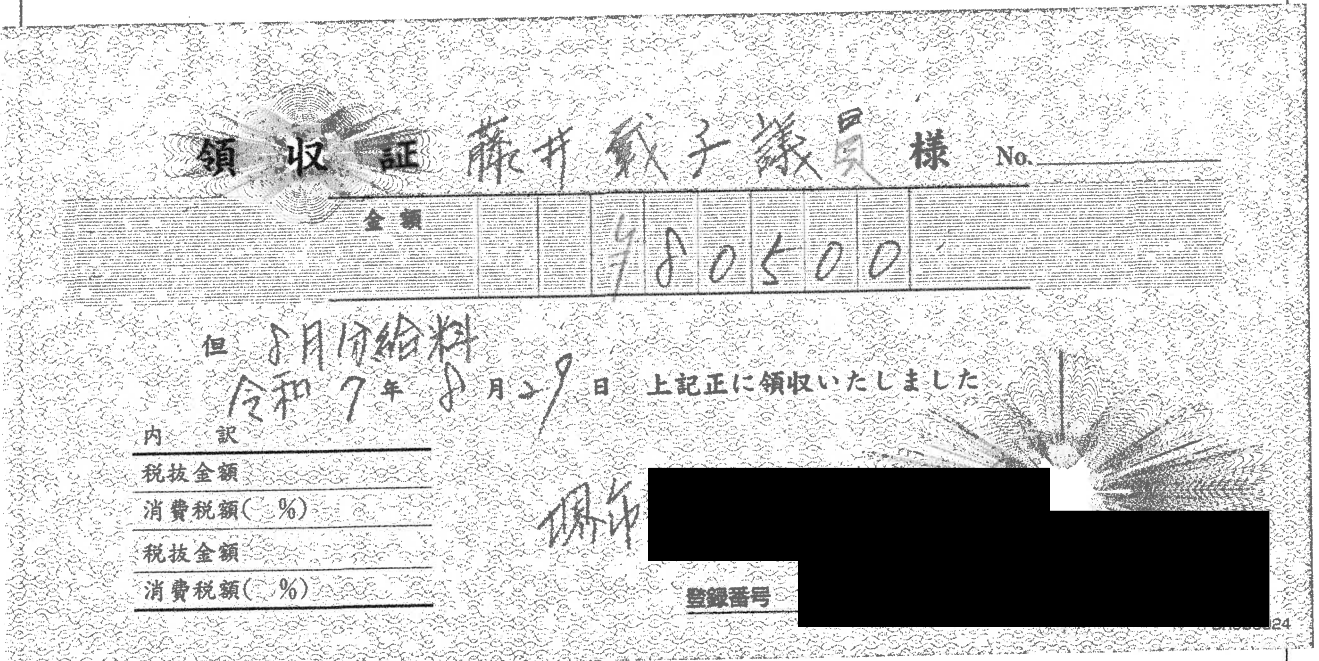 領収証 藤井載子議員様 No.
金額 ¥80500
但 8月分給料
令和7年8月29日 上記正に領収いたしました
内訳
税抜金額
消費税額( %)
税抜金額
消費税額( %)
堺市
登録番号